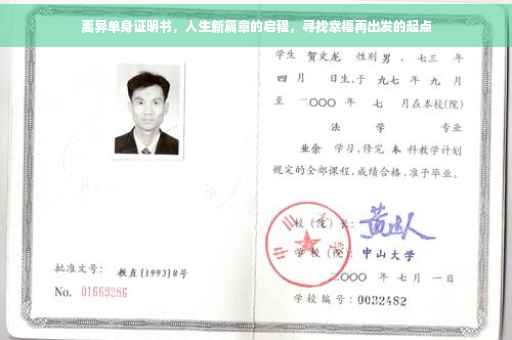 离异单身证明书，人生新篇章的启程，寻找幸福再出发的起点
学生 贺文龙 性别 男 ，七三 年
四 月 日生，于 九七 年 九 月
至 二〇〇〇 年 七 月在本校(院)
法 学 专业
业余 学习，修完 本 科教学计划
规定的全部课程，成绩合格，准予毕业。
校（院）长：
学 校（院）： 中山大学
二〇〇〇 年 七 月 一 日
学校编号：0032482
批准文号： 教直[1993]8号
No. 01669286